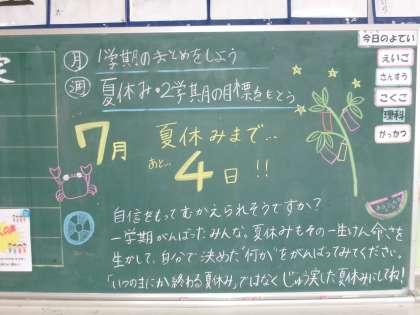 今日のよてい
月 1学期のまとめをしよう
えいご
週 夏休み・2学期の目標をもとう
さんすう
こくご
理科
がっかつ
7月 夏休みまで…
あと… 4日!!
自信をもってむかえられそうですか?
一学期がんばったみんな。夏休みもその一生けん命さを
生かして、自分で決めた"何か"をがんばってみてください。
「いつのまにか終わる夏休み」ではなくじゅう実した夏休みにしてね!